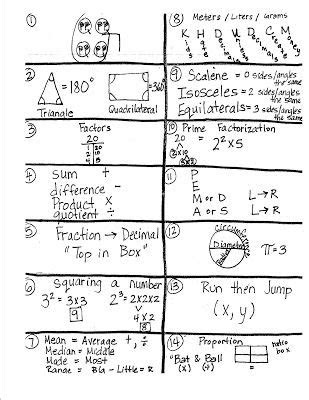 ①
2
△ = 180°
Triangle
= 360°
Quadrilateral
3
Factors
20
1 20
2 10
4 5
4
Sum +
difference -
Product x
quotient ÷
5
Fraction → Decimal
"Top in Box"
6
Squaring a number
3² = 3x3
9
2³ = 2x2x2
4 x 2
8
7
Mean = Average +, ÷
Median = Middle
Mode = Most
Range = Big - Little = R
⑧ Meters / Liters / Grams
K H D U D C M
⑨ Scalene = 0 sides/angles the same
Isosceles = 2 sides/angles the same
Equilaterals = 3 sides/angles the same
⑩ Prime Factorization
20
2 x 10
2² x 5
⑪
P
E
M or D L→R
A or S L→R
⑫
Circumference
Diameter
Radius
π = 3
⑬
Run then Jump
(x, y)
⑭
Proportion
ratio box
"Bat & Ball
(x) (÷) =